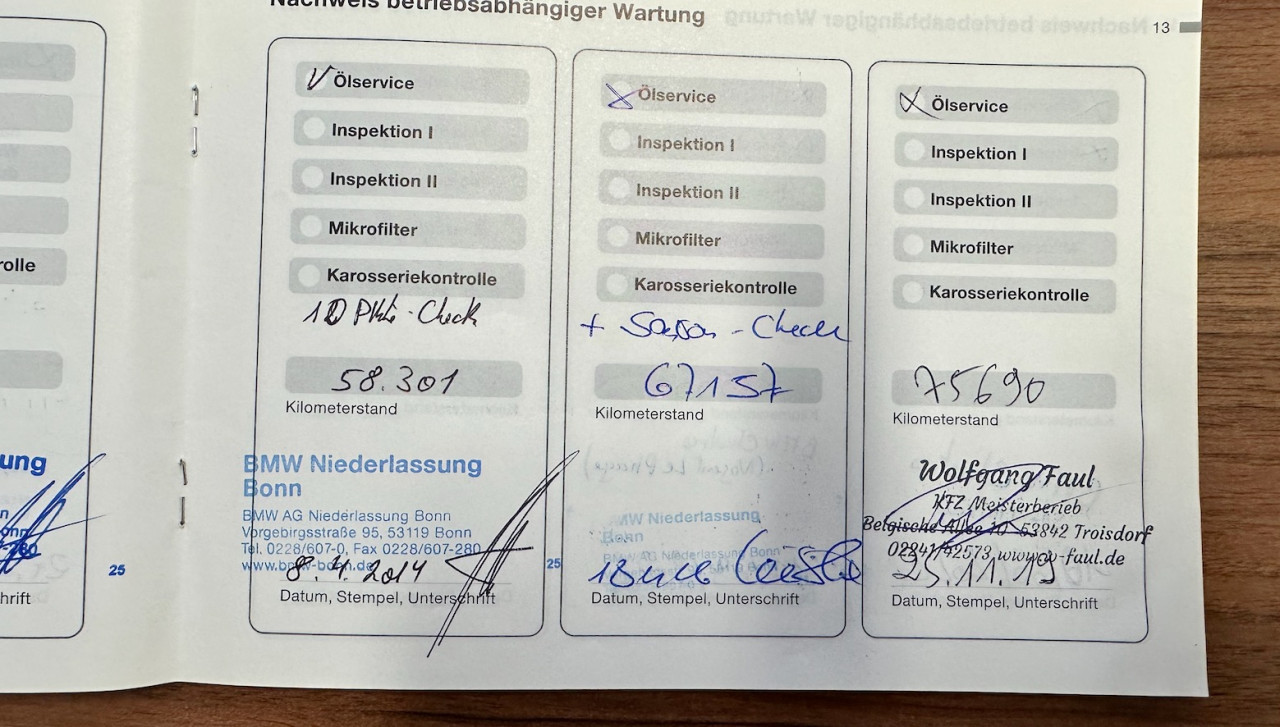 Nachweis betriebsabhängiger Wartung
13
Ölservice
Inspektion I
Inspektion II
Mikrofilter
Karosseriekontrolle
10 Pkt.-Check
58.301
Kilometerstand
BMW Niederlassung
Bonn
BMW AG Niederlassung Bonn
Vorgebirgsstraße 95, 53119 Bonn
Tel. 0228/607-0, Fax 0228/607-280
www.bmw-bonn.de
8.4.2014
25
Datum, Stempel, Unterschrift
Ölservice
Inspektion I
Inspektion II
Mikrofilter
Karosseriekontrolle
+ Saison-Check
67157
Kilometerstand
BMW Niederlassung
Bonn
BMW AG Niederlassung Bonn
Datum, Stempel, Unterschrift
Ölservice
Inspektion I
Inspektion II
Mikrofilter
Karosseriekontrolle
75690
Kilometerstand
Wolfgang Faul
KFZ Meisterberieb
Belgische Allee 10 53842 Troisdorf
02841/92573, www.w-faul.de
25.11.15
Datum, Stempel, Unterschrift
rolle
ung
25
hrift